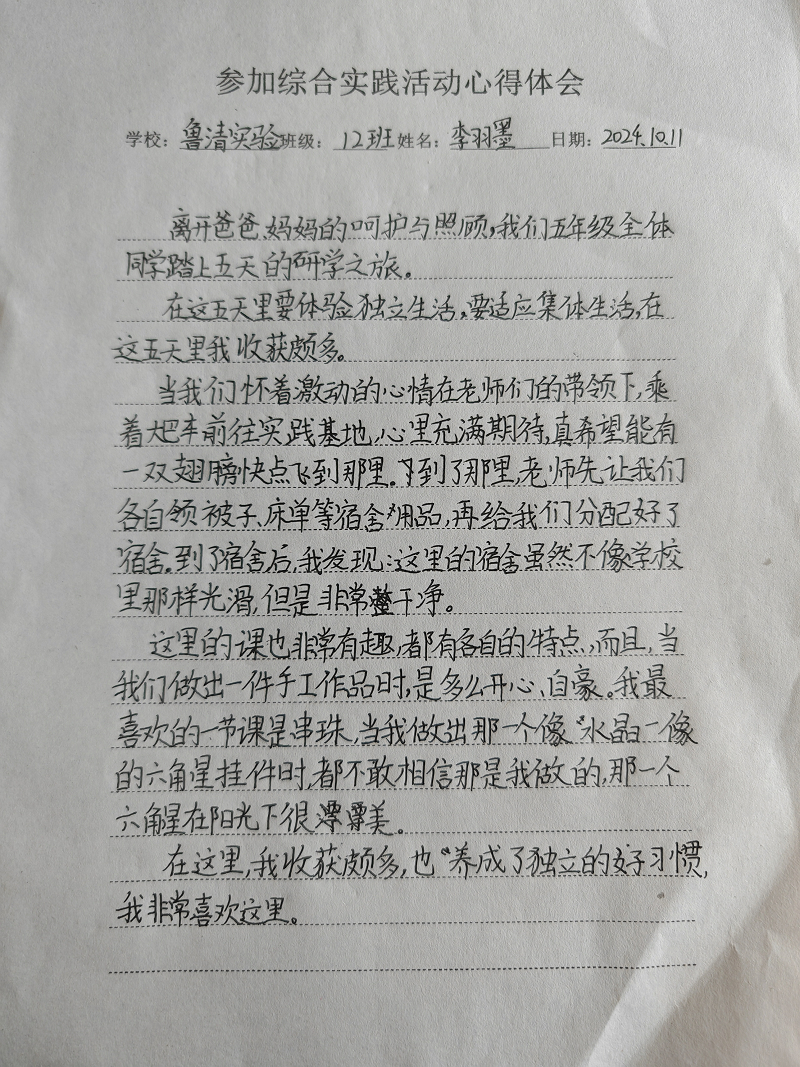 参加综合实践活动心得体会
学校：鲁清实验班级：12班姓名：李羽墨 日期：2024.10.11
离开爸爸、妈妈的呵护与照顾，我们五年级全体
同学踏上五天的研学之旅。
在这五天里要体验独立生活，要适应集体生活，在
这五天里我收获颇多。
当我们怀着激动的心情在老师们的带领下，乘
着大巴车前往实践基地，心里充满期待，真希望能有
一双翅膀快点飞到那里。到了那里，老师先让我们
各自领被子、床单等宿舍用品，再给我们分配好了
宿舍。到了宿舍后，我发现：这里的宿舍虽然不像学校
里那样光滑，但是非常整干净。
这里的课也非常有趣，都有各自的特点，而且，当
我们做出一件手工作品时，是多么开心、自豪。我最
喜欢的一节课是串珠，当我做出那一个像“水晶”一像
的六角星挂件时，都不敢相信那是我做的，那一个
六角星在阳光下很漂美。
在这里，我收获颇多，也“养成了独立的好习惯，
我非常喜欢这里。